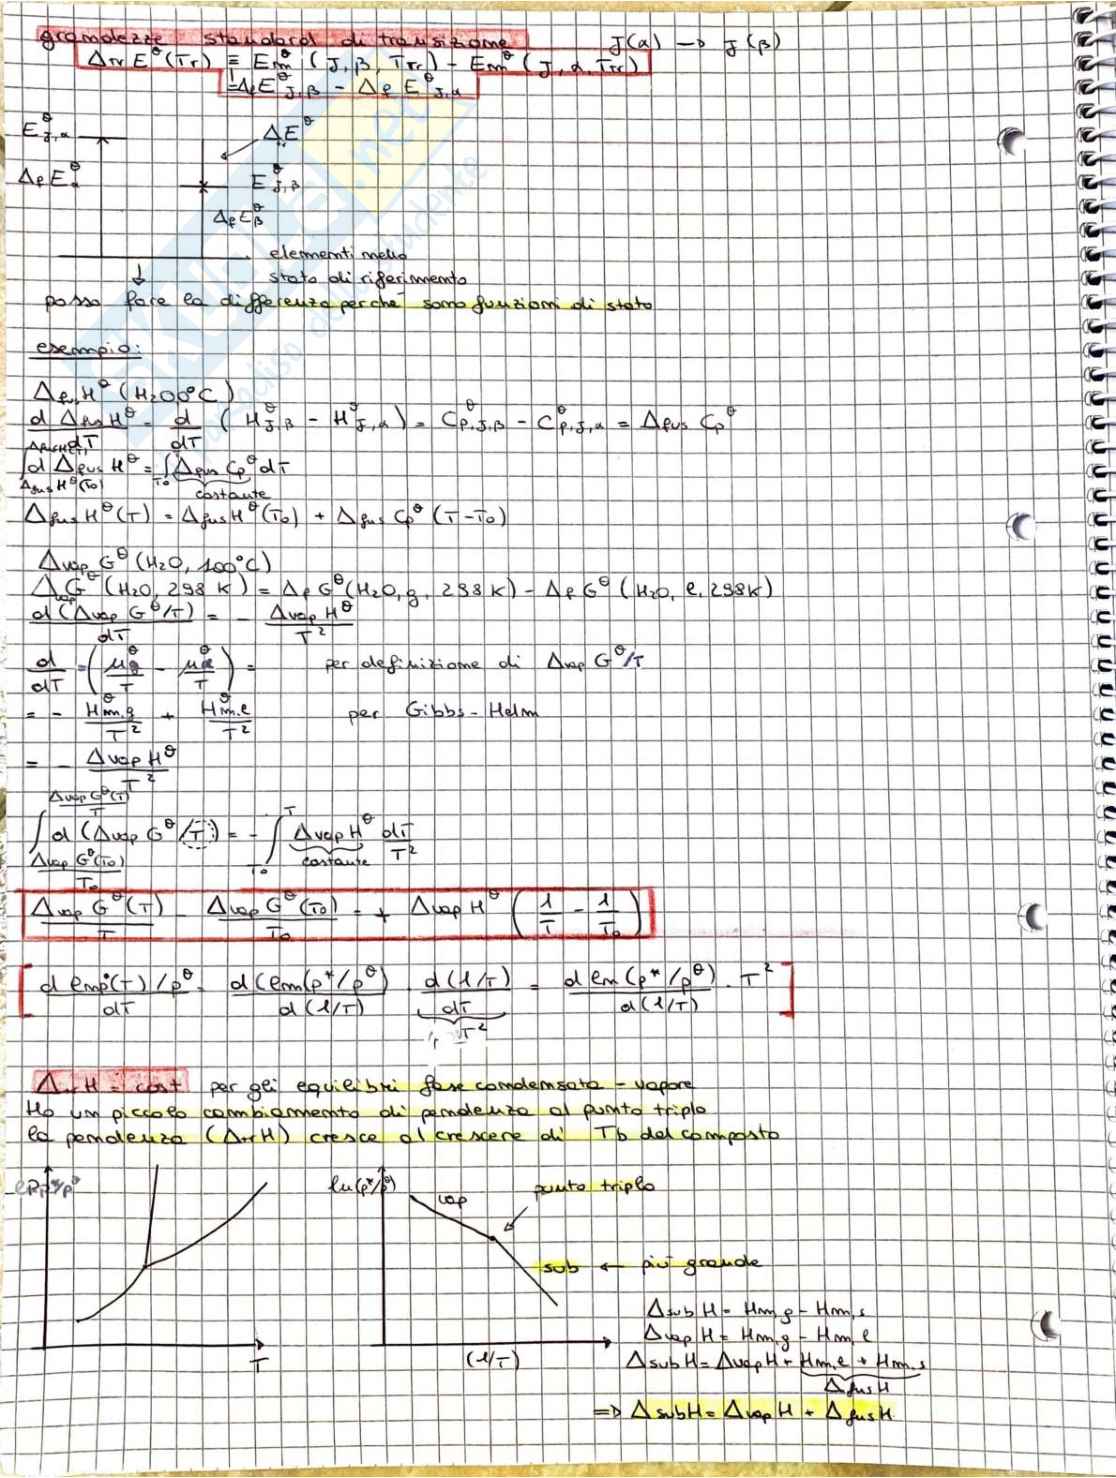 grandezze standard di transizione J(α) → J(β)
ΔtrE°(Tr) = Em°(J, β, Ttr) - Em°(J, α, Ttr)
= ΔfE°J,β - ΔfE°J,α
E°J,α
ΔE°
ΔfE°α
E°J,β
ΔfE°β
elementi nello
stato di riferimento
posso fare la differenza perché sono funzioni di stato
esempio:
ΔfusH°(H2O 0°C)
d ΔfusH°/dT = d/dT (H°J,β - H°J,α) = C°p,J,β - C°p,J,α = Δfus Cp°
∫ d ΔfusH° = ∫T0 Δfus Cp° dT
ΔfusH°(T0)
costante
ΔfusH°(T) = ΔfusH°(T0) + Δfus Cp° (T-T0)
Δvap G°(H2O, 100°C)
ΔvapG°(H2O, 298 K) = Δf G°(H2O, g, 298 K) - Δf G°(H2O, l, 298K)
d(Δvap G°/T)/dT = - Δvap H°/T²
d/dT (μg°/T - μl°/T) = per definizione di Δvap G°/T
= - H°m,g/T² + H°m,l/T² per Gibbs-Helm
= - Δvap H°/T²
Δvap G°(T)/T
∫ d(Δvap G°/T) = - ∫T0 T Δvap H° dT/T²
Δvap G°(T0)/T0
costante
Δvap G°(T)/T - Δvap G°(T0)/T0 = + Δvap H° (1/T - 1/T0)
[d ln p*(T)/p°/dT = d(ln(p*/p°)/d(1/T) · d(1/T)/dT = d ln(p*/p°)/d(1/T) · T²]
T²
ΔtrH = cost per gli equilibri fase condensata - vapore
Ho un piccolo cambiamento di pendenza al punto triplo
la pendenza (ΔtrH) cresce al crescere di Tb del composto
ln(p*/p°)
vap
punto triplo
sub ← più grande
T
(1/T)
ΔsubH = Hm,g - Hm,s
ΔvapH = Hm,g - Hm,l
ΔsubH = ΔvapH + Hm,l + Hm,s
ΔfusH
⇒ ΔsubH = ΔvapH + ΔfusH